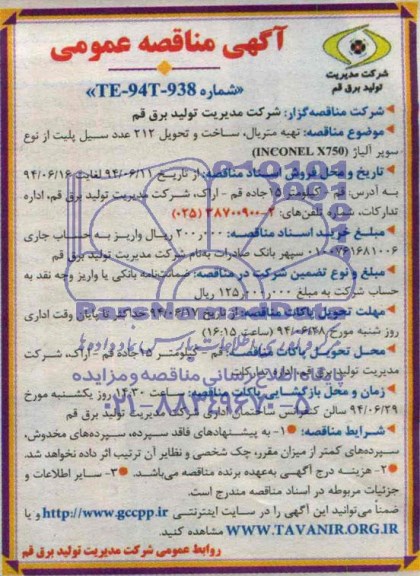 آگهی مناقصه عمومی
شرکت مدیریت
تولید برق قم
«شماره TE-94T-938»
شرکت مناقصه‌گزار: شرکت مدیریت تولید برق قم
موضوع مناقصه: تهیه متریال، ساخت و تحویل ۲۱۲ عدد سیل پلیت از نوع
سوپر آلیاژ (INCONEL X750)
تاریخ و محل فروش اسناد مناقصه: از تاریخ ۹۴/۰۶/۱۱ لغایت ۹۴/۰۶/۱۶
به آدرس: قم - کیلومتر ۱۵ جاده قم - اراک، شرکت مدیریت تولید برق قم، اداره
تدارکات، شماره تلفن‌های: ۲-۳۸۷۰۰۹۰۰ (۰۲۵)
مبلغ خرید اسناد مناقصه: ۲۰۰٫۰۰۰ ریال واریز به حساب جاری
سپهر بانک صادرات به‌نام شرکت مدیریت تولید برق قم
مبلغ و نوع تضمین شرکت در مناقصه: ضمانت‌نامه بانکی یا واریز وجه نقد به
حساب شرکت به مبلغ ریال
مهلت تحویل پاکات مناقصه: از تاریخ ۹۴/۰۶/۱۷ حداکثر تا پایان وقت اداری
روز شنبه مورخ ۹۴/۰۶/۲۸ (ساعت ۱۶:۱۵)
محل تحویل پاکات مناقصه: قم - کیلومتر ۱۵ جاده قم - اراک، شرکت
مدیریت تولید برق قم، اداره تدارکات
زمان و محل بازگشایی پاکات مناقصه: ساعت روز یکشنبه مورخ
۹۴/۰۶/۲۹ سالن کنفرانس ساختمان اداری شرکت مدیریت تولید برق قم
شرایط مناقصه: ۱- به پیشنهادهای فاقد سپرده، سپرده‌های مخدوش،
سپرده‌های کمتر از میزان مقرر، چک شخصی و نظایر آن ترتیب اثر داده نخواهد شد.
۲- هزینه درج آگهی به‌عهده برنده مناقصه می‌باشد. ۳- سایر اطلاعات و
جزئیات مربوطه در اسناد مناقصه مندرج است.
ضمناً می‌توانید این آگهی را در سایت اینترنتی http://www.gccpp.ir و یا
WWW.TAVANIR.ORG.IR مشاهده کنید.
روابط عمومی شرکت مدیریت تولید برق قم
ParsNamadData
پایگاه اطلاع رسانی مناقصه و مزایده
۰۲۱-۸۸۳۴۹۶۷۰-۵